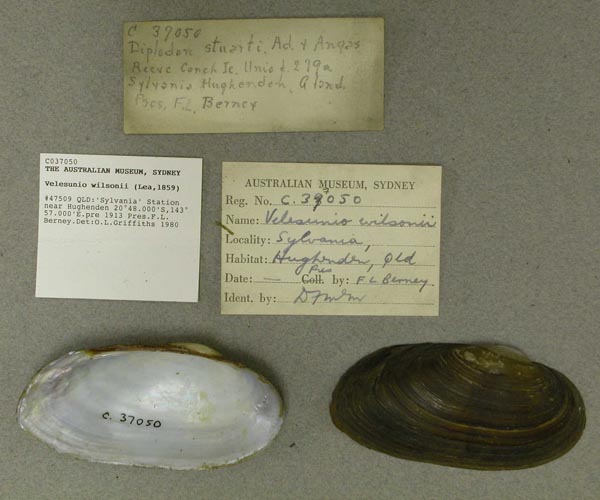 C 37050
Diplodon stuarti. Ad. & Angas
Reeve Conch Ic. Unio f. 279a
Sylvania Hughenden, Q'land.
Pres. F.L. Berney
C037050
THE AUSTRALIAN MUSEUM, SYDNEY
Velesunio wilsonii (Lea,1859)
#47509 QLD:'Sylvania' Station
near Hughenden 20°48.000'S,143°
57.000'E.pre 1913 Pres.F.L.
Berney.Det:O.L.Griffiths 1980
AUSTRALIAN MUSEUM, SYDNEY
Reg. No. C.37050
Name: Velesunio wilsonii
Locality: Sylvania,
Habitat: Hughenden, Qld
Pres
Date: — Coll. by: F L Berney
Ident. by:
C. 37050